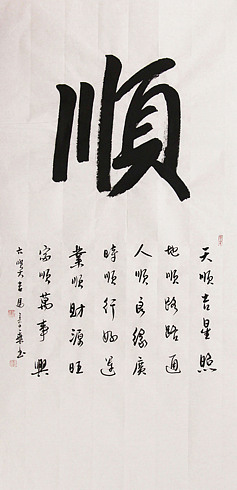 順
天順吉星照
地順路路通
人順良緣廣
時順行好運
業順財源旺
家順萬事興